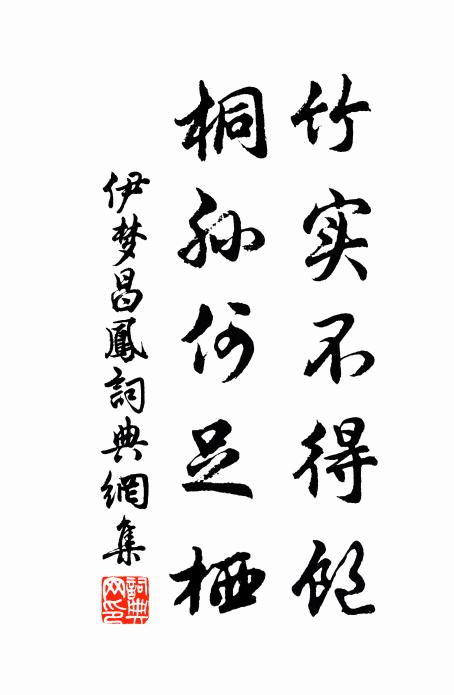 竹实不得饱
桐孙何足栖
伊梦昌鳳詞典網集
詞典网印